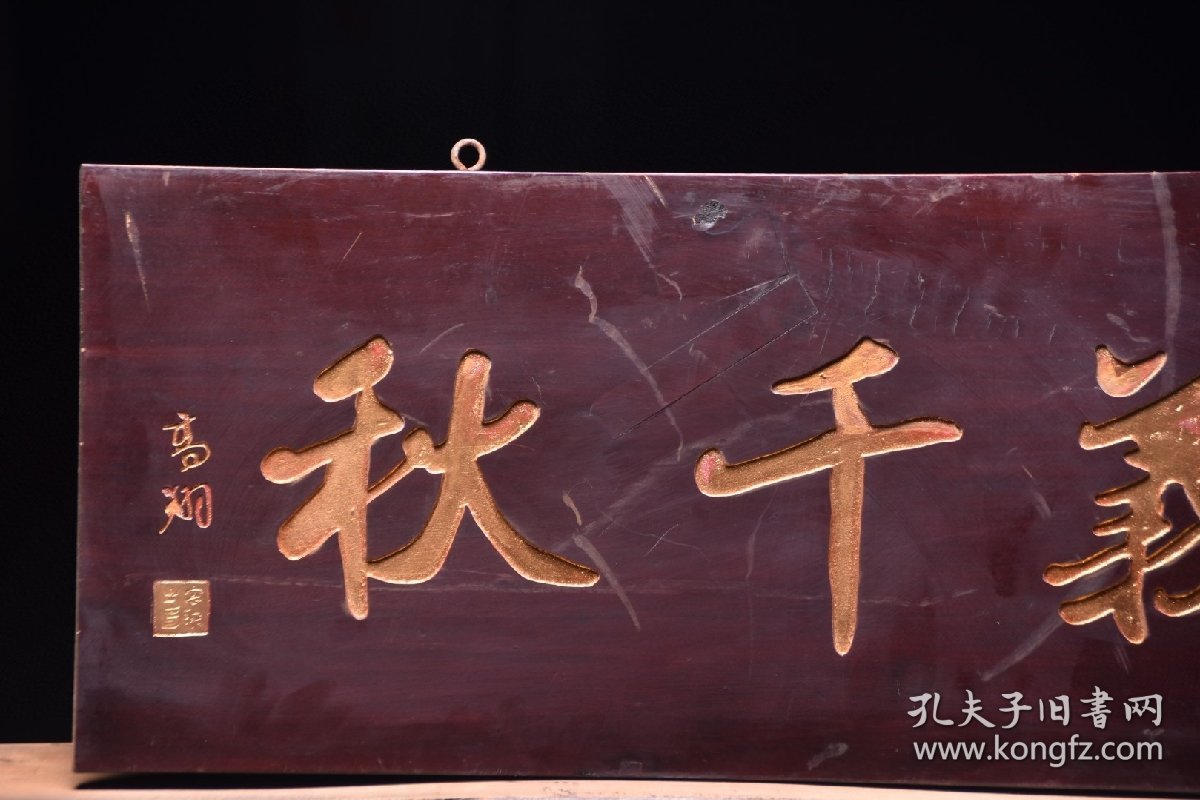 義千秋
高翔
孔夫子旧書网
www.kongfz.com